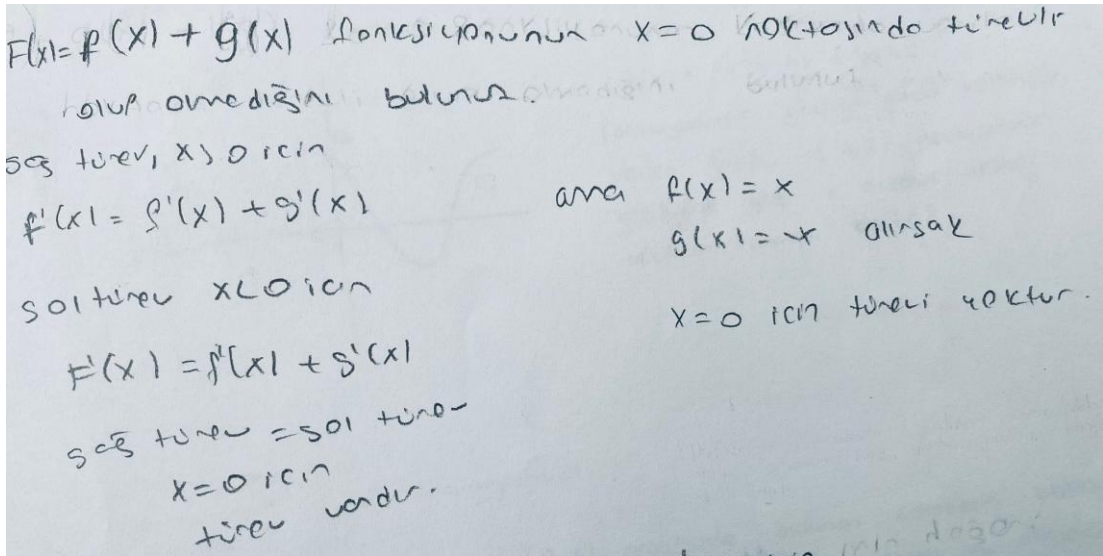 F(x)= f(x) + g(x) fonksiyonunun x=0 noktasında türevli
olup olmadığını bulunuz.
sağ türev, x>0 için
f'(x) = f'(x) + g'(x)
sol türev x<0 için
F'(x) = f'(x) + g'(x)
sağ türev = sol türev
x=0 için
türev vardır.
ama f(x) = x
g(x) = alırsak
x=0 için türevi yoktur.